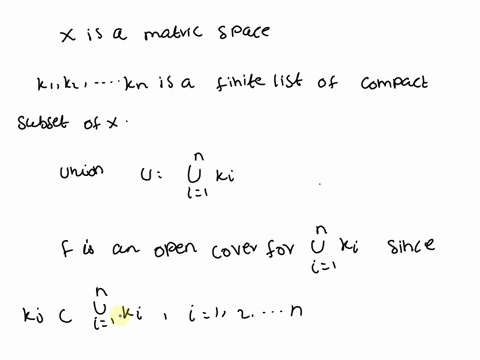 x is a matric space
k1, k2, ....kn is a finite list of compact
subset of x.
union U: n∪i=1 ki
F is an open cover for n∪i=1 ki since
ki ⊂ n∪i=1 ki , i=1, 2....n